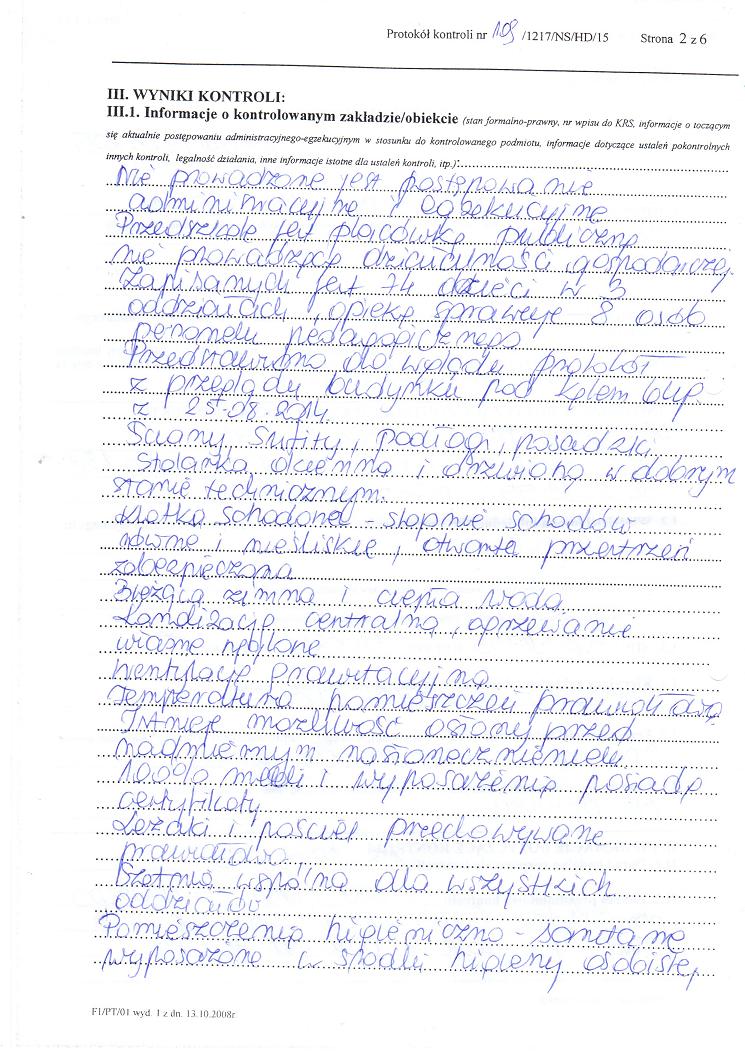 Protokół kontroli nr 109 /1217/NS/HD/15 Strona 2 z 6
III. WYNIKI KONTROLI:
III.1. Informacje o kontrolowanym zakładzie/obiekcie (stan formalno-prawny, nr wpisu do KRS, informacje o toczącym
się aktualnie postępowaniu administracyjnego-egzekucyjnym w stosunku do kontrolowanego podmiotu, informacje dotyczące ustaleń pokontrolnych
innych kontroli, legalność działania, inne informacje istotne dla ustaleń kontroli, itp.):
Nie prowadzone jest postępowanie
administracyjne i egzekucyjne
Przedszkole jest placówką publiczną
nie prowadzącą działalności gospodarczej.
Zapisanych jest 74 dzieci w 3
oddziałach, opiekę sprawuje 8 osób
personelu pedagogicznego
Przedstawiono do wglądu protokół
z przeglądu budynku pod kątem bhp
z 25.08.2014.
Ściany, sufity, podłogi, posadzki,
stolarka okienna i drzwiowa w dobrym
stanie technicznym.
Klatka schodowa - stopnie schodów
równe i nieśliskie, otwarta przestrzeń
zabezpieczona
Bieżąca zimna i ciepła woda
Kanalizacja centralna, ogrzewanie
własne
Wentylacja grawitacyjna
Temperatura pomieszczeń prawidłowa
Istnieje możliwość osłony przed
nadmiernym nasłonecznieniem
100% mebli i wyposażenia posiada
certyfikaty
Leżaki i pościel przechowywane
prawidłowo
Szatnia wspólna dla wszystkich
oddziałów
Pomieszczenia higieniczno-sanitarne
wyposażone w środki higieny osobistej,
F1/PT/01 wyd. 1 z dn. 13.10.2008r